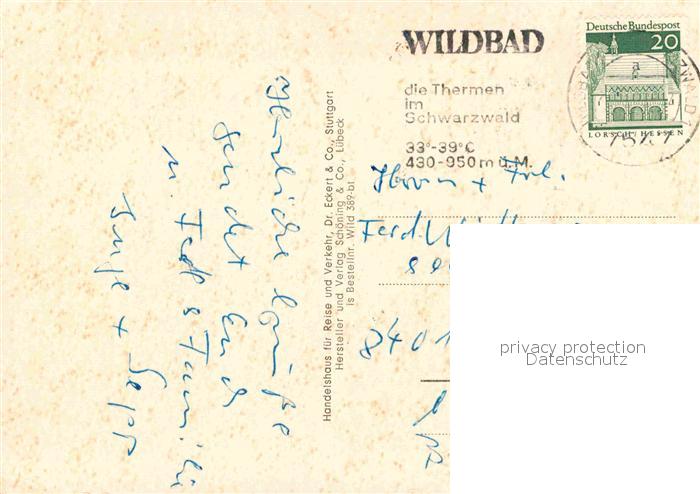 WILDBAD
die Thermen
im
Schwarzwald
33°-39°C
430-950 m ü. M.
Deutsche Bundespost
20
LORSCH / HESSEN
Herrn + Frl.
Ferd.
8401
privacy protection
Datenschutz
Handelshaus für Reise und Verkehr, Dr. Eckert & Co., Stuttgart
Hersteller und Verlag Schöning & Co., Lübeck
is Bestellnr. Wild 389-b1
Herzliche Grüße
sendet Euch
u. Ferd & Familie
Inge + Sepp